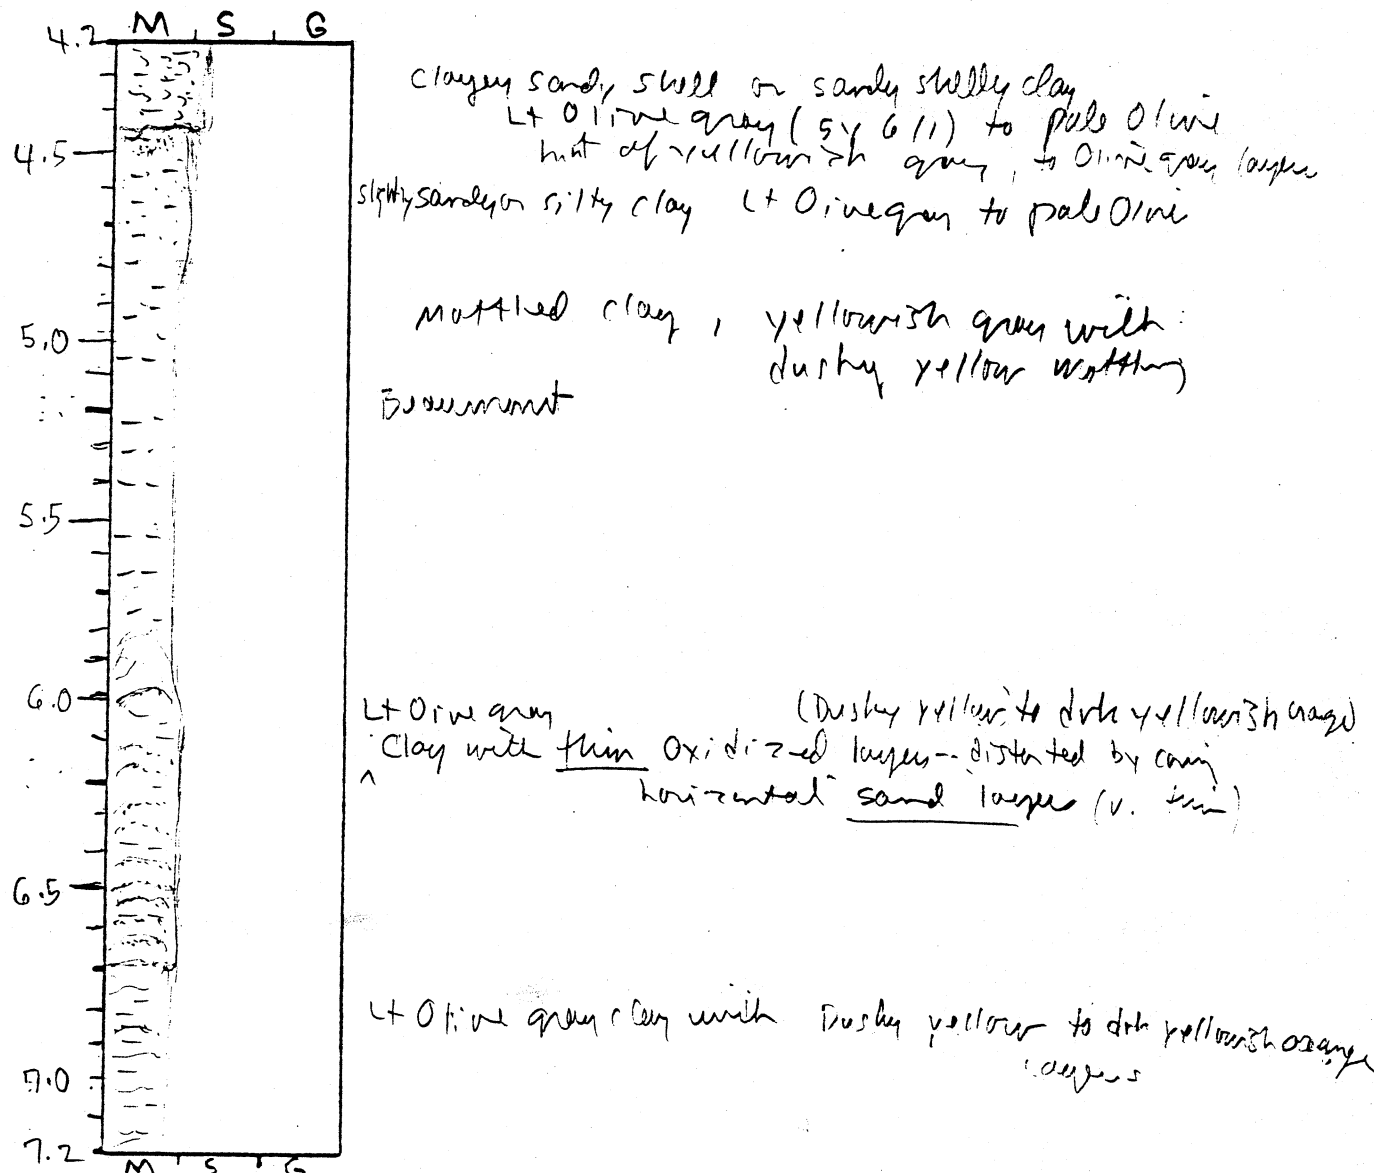 M S G
4.2
clayey sandy shell or sandy shelly clay
Lt Olive gray (5Y 6/1) to pale Olive
hint of yellowish gray, to Olive gray layers
4.5
slightly sandy or silty clay Lt Olive gray to pale Olive
Mottled clay, yellowish gray with
5.0
dusky yellow mottling
Beaumont
5.5
6.0
Lt Olive gray (Dusky yellow to drk yellowish orange)
^ Clay with thin oxidized layers -- distorted by coring
horizontal sand layers (v. thin)
6.5
Lt Olive gray clay with Dusky yellow to drk yellowish orange
layers
7.0
7.2
M S G